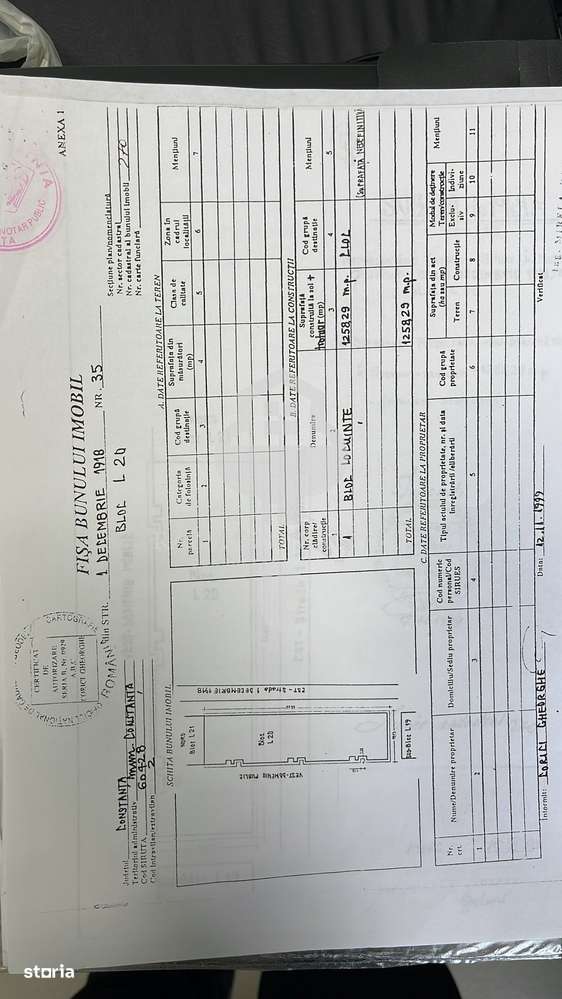 ANEXA 1
FIȘA BUNULUI IMOBIL
din STR. 1 DECEMBRIE 1918 NR. 35
BLOC L 20
CARTOGRAFIE
CERTIFICAT
DE
AUTORIZARE
SERIA B, Nr 0929
GHEORGHE
ROMÂNIA
NOTAR PUBLIC
Județul CONSTANȚA
Teritoriul administrativ mun. CONSTANȚA
Cod SIRUTA 60428
Cod intravilan/extravilan 2
Secțiune plan/nomenclatură
Nr. sector cadastral
Nr. cadastral al bunului imobil 270
Nr. carte funciară
SCHIȚA BUNULUI IMOBIL
NORD
Bloc L 21
Bloc
L 20
EST - Strada 1 DECEMBRIE 1918
VEST - DOMENIU PUBLIC
SUD - Bloc L 19
A. DATE REFERITOARE LA TEREN
Nr. parcela
Categoria de folosință
Cod grupă destinație
Suprafața din măsurători (mp)
Clasa de calitate
Zona în cadrul localității
Mențiuni
1 2 3 4 5 6 7
TOTAL
B. DATE REFERITOARE LA CONSTRUCȚII
Nr. corp clădire/construcție
Denumire
Suprafața construită la sol + trotuar (mp)
Cod grupă destinație
Mențiuni
1 2 3 4 5
1 BLOC LOCUINTE 1258,29 m.p.
TOTAL 1258,29 m.p.
C. DATE REFERITOARE LA PROPRIETAR
Nr. crt.
Nume/Denumire proprietar
Domiciliu/Sediu proprietar
Cod numeric personal/Cod SIRUES
Tipul actului de proprietate, nr. și data înregistrării/eliberării
Cod grupă proprietate
Suprafața din act (ha sau mp)
Teren
Construcție
Modul de deținere
Teren/construcție
Exclusiv
Indiviziune
Mențiuni
1 2 3 4 5 6 7 8 9 10 11
Întocmit: GHEORGHE
Data: 12.11.1999
Verificat
storia